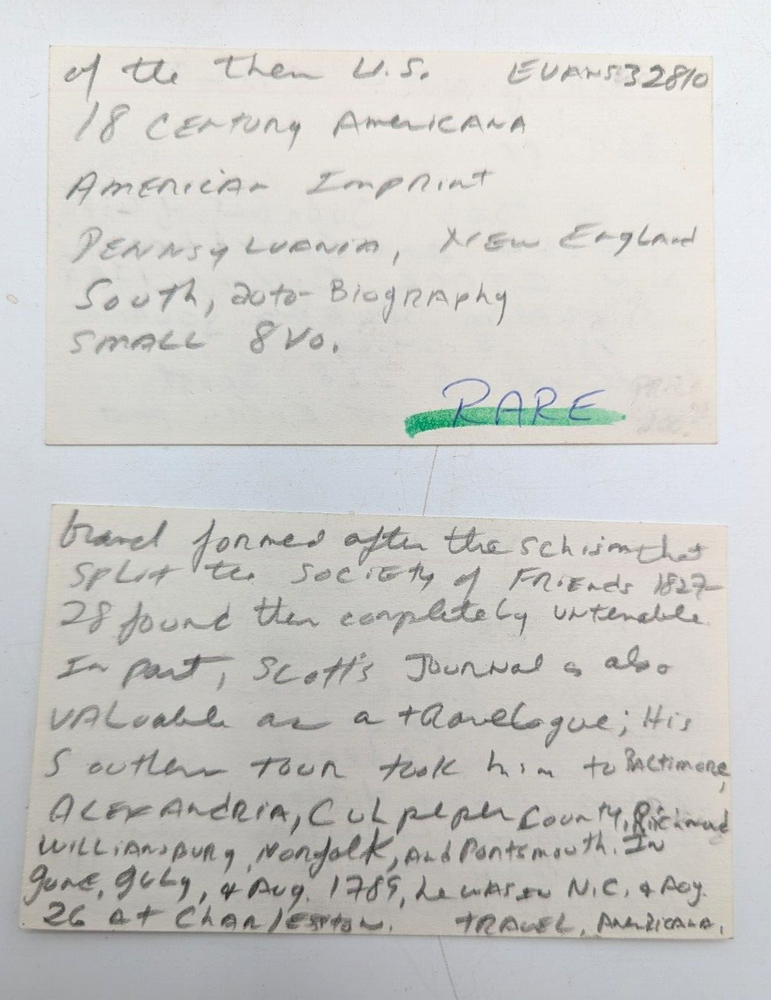 of the then U.S. EVANS 32810
18 CENTURY AMERICANA
AMERICAN Imprint
PENNSYLVANIA, NEW England
South, auto-Biography
SMALL 8Vo.
RARE
formed after the schism that
split the SOCIETy of FRIENDS 1827-
28 found them completely untenable.
In part, Scott's JOURNAL is also
VALuable as a travelogue; His
Southern TOUR took him to BALTIMORE,
ALEXANDRIA, Culpeper County, Richmond
WILLIAMSBURG, Norfolk, and Portsmouth. In
June, July, & Aug. 1789, he was in N.C. & Aug.
26 AT Charleston. TRAVEL, AMERICANA.